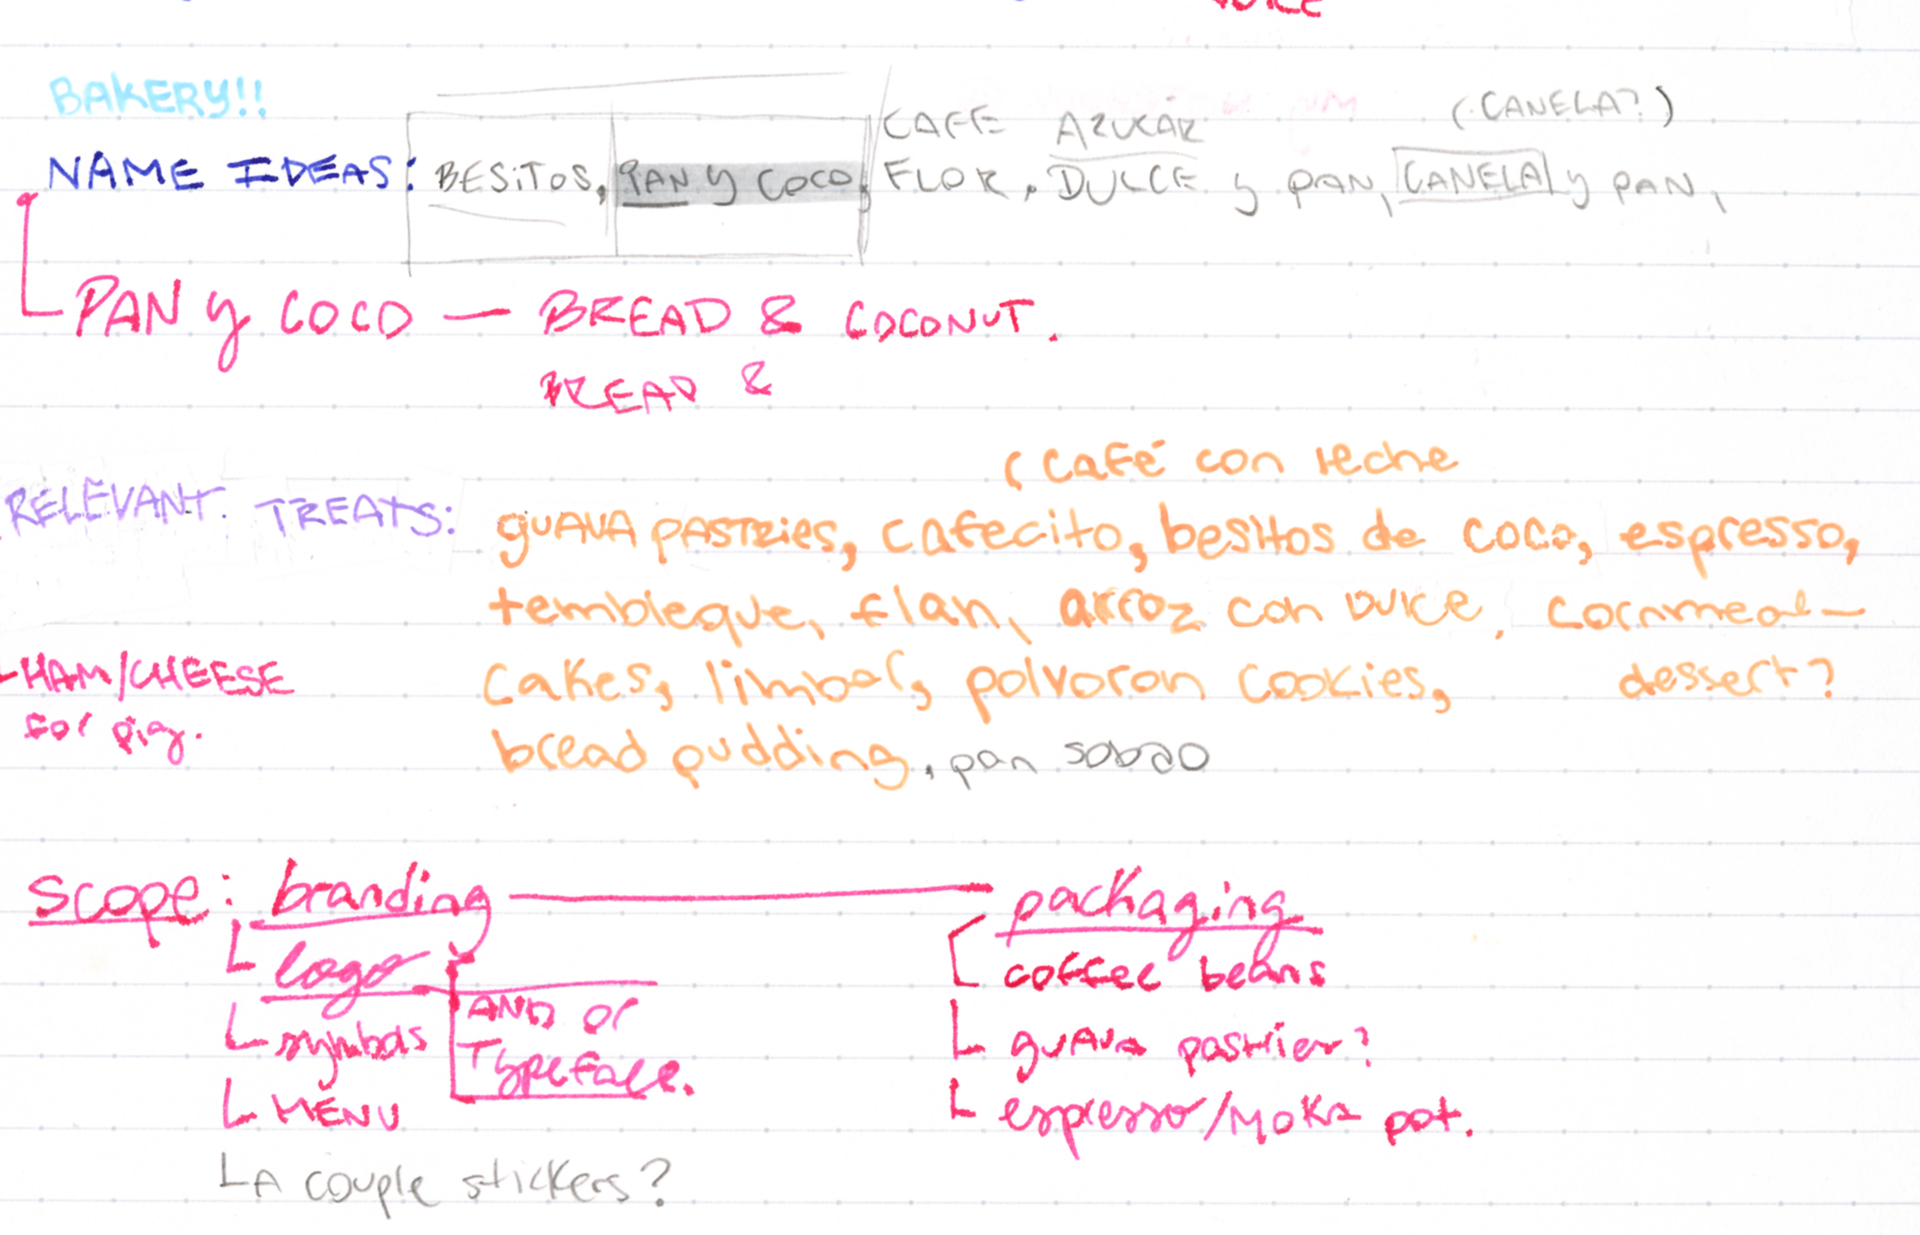 BAKERY!!
CAFE AZUCAR (CANELA?)
NAME IDEAS: BESITOS, PAN y COCO, FLOR, DULCE y PAN, CANELA y PAN,
PAN y COCO — BREAD & COCONUT.
BREAD &
(café con leche
RELEVANT TREATS: guava pastries, cafecito, besitos de coco, espresso,
tembleque, flan, arroz con DULCE, cornmeal—
HAM/CHEESE cakes, limber, polvoron cookies, dessert?
for pig. bread pudding, pan sobao
scope: branding — packaging
logo coffee beans
AND or
symbols guava pastries?
Typeface.
MENU espresso/moka pot.
A couple stickers?